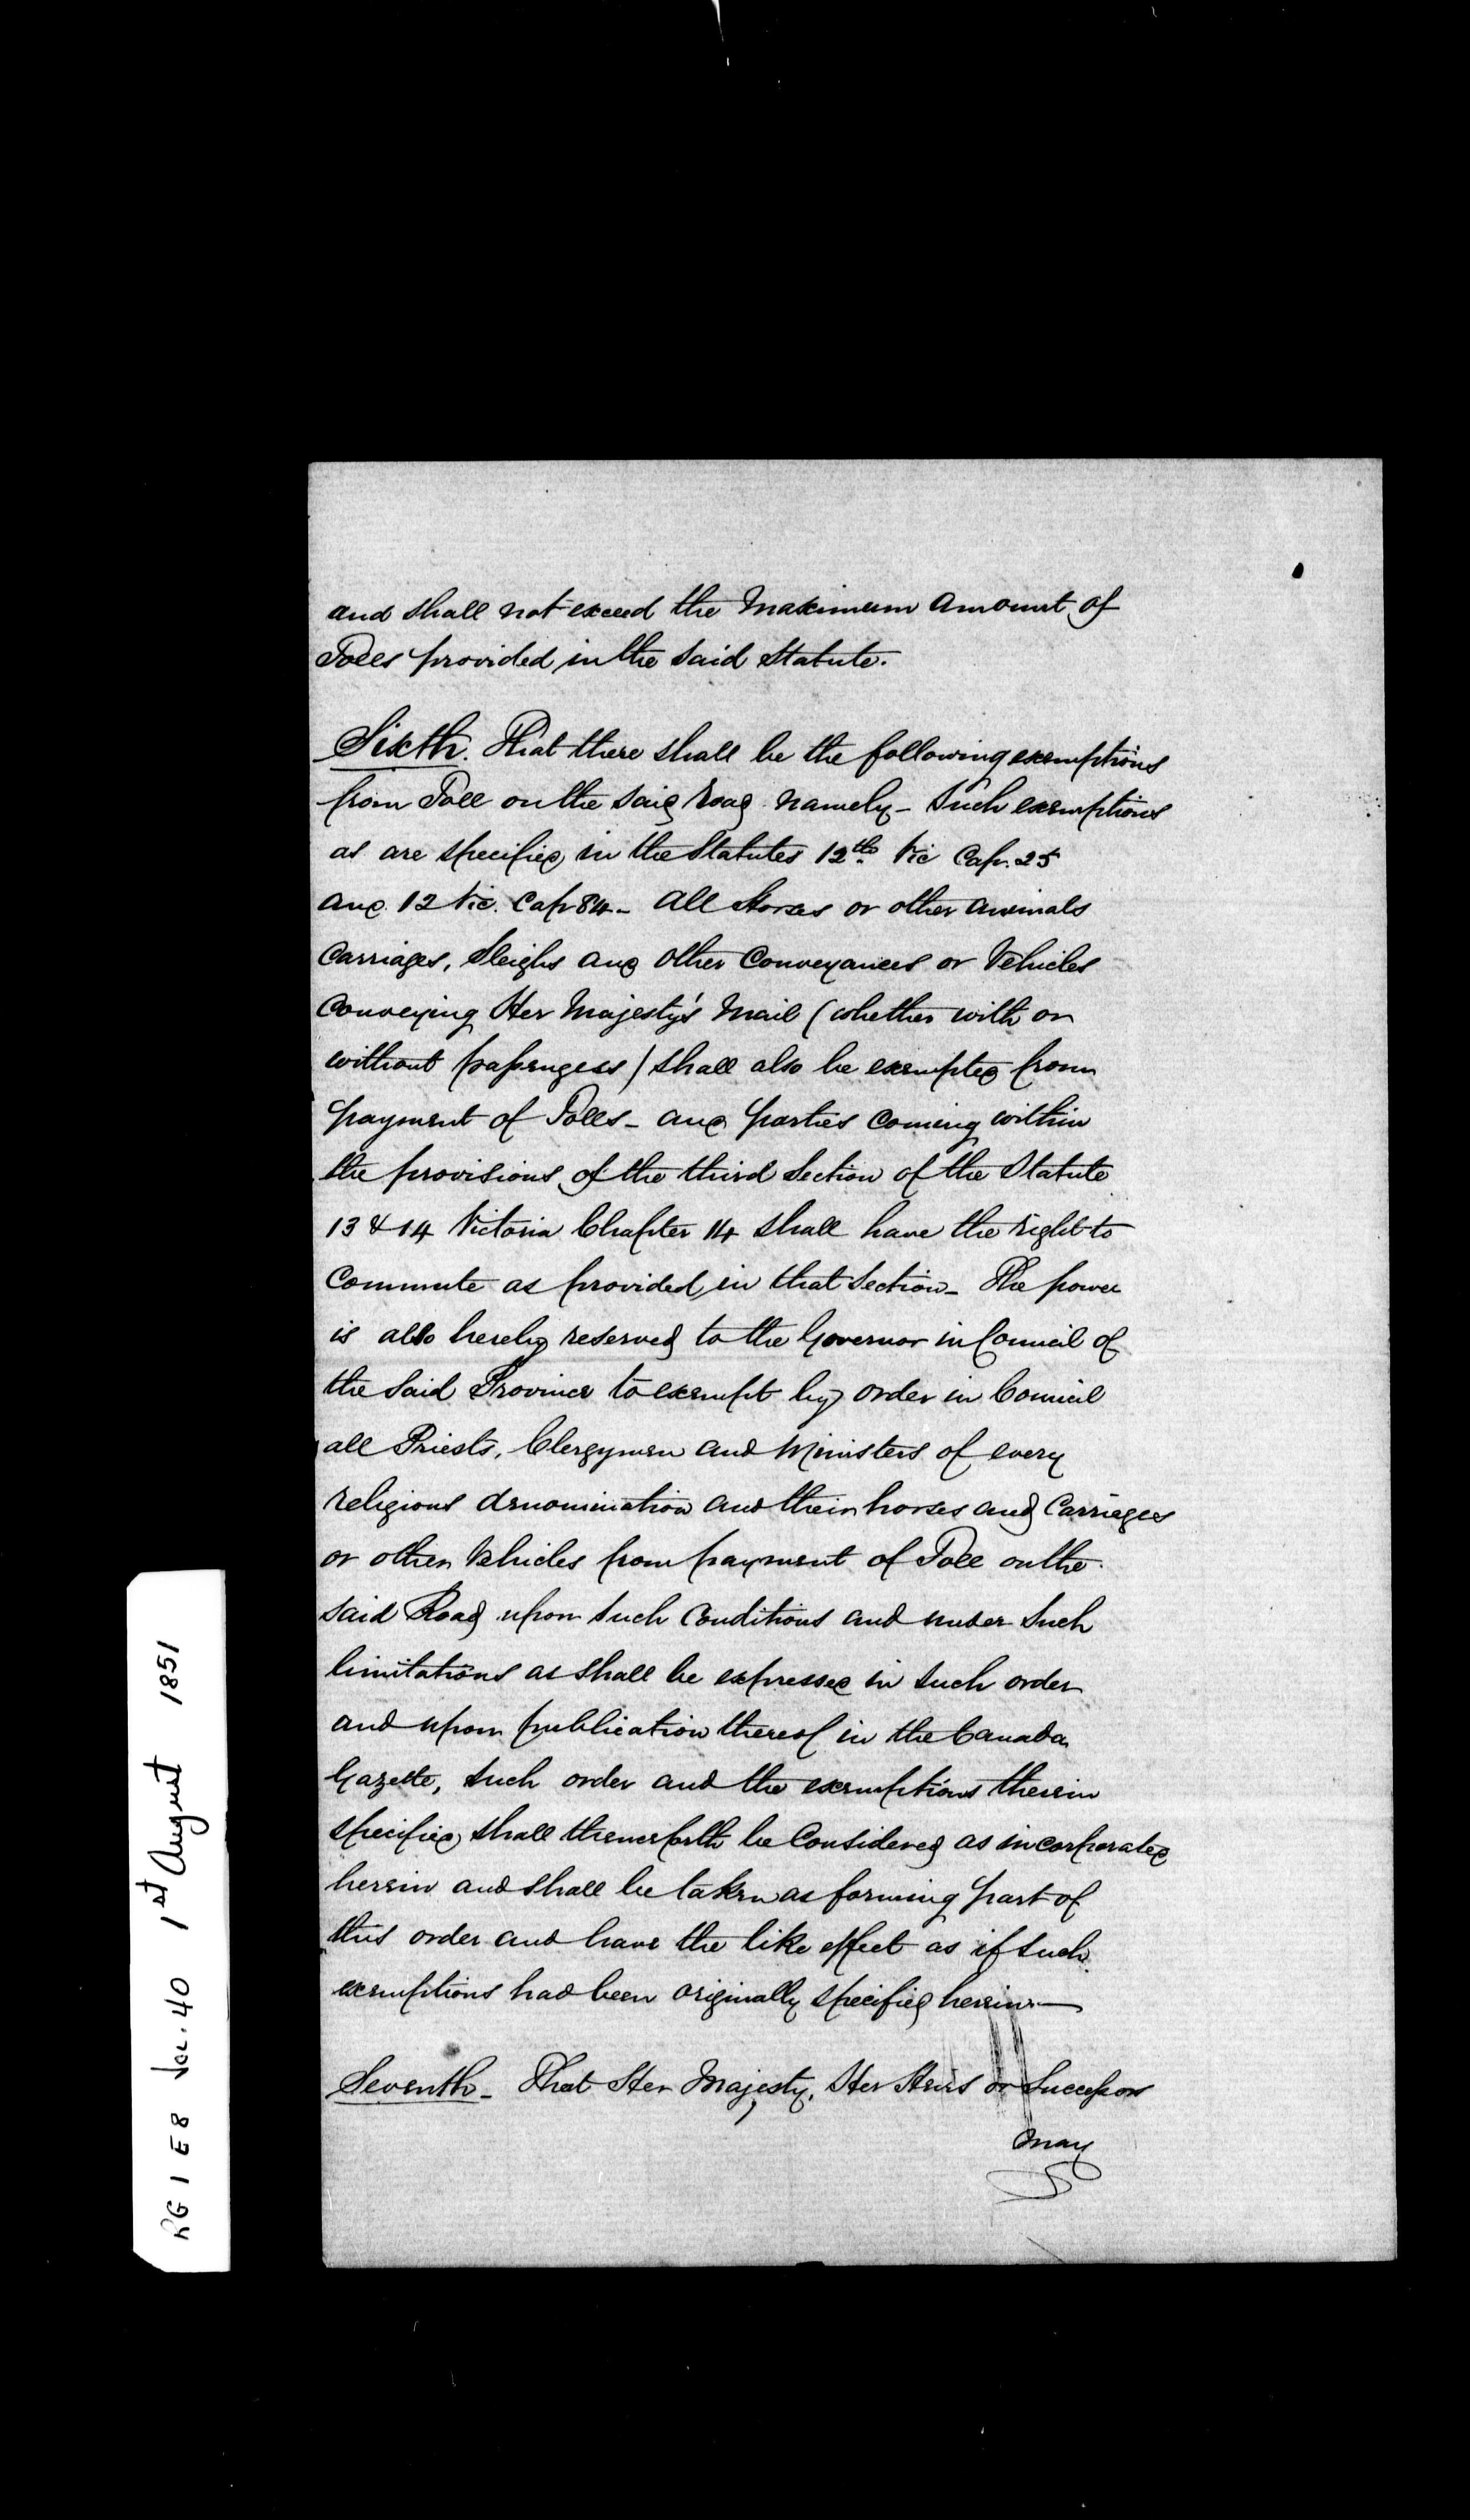 and shall not exceed the Maximum Amount of
Tolls provided in the said Statute.
Sixth. That there shall be the following exemptions
from Toll on the said Road namely - Such exemptions
as are specified in the Statutes 12th Vic Cap. 25
and 12 Vic. Cap 84 - All Horses or other Animals
Carriages, Sleighs and other Conveyances or Vehicles
Conveying Her Majesty's Mail (whether with or
without passengers) shall also be exempted from
payment of Tolls - and parties Coming within
the provisions of the third Section of the Statute
13 & 14 Victoria Chapter 14 shall have the right to
Commute as provided in that Section - The power
is also hereby reserved to the Governor in Council of
the said Province to exempt by order in Council
all Priests, Clergymen and Ministers of every
religious denomination and their horses and Carriages
or other Vehicles from payment of Toll on the
said Road upon such Conditions and under Such
limitations as shall be expressed in such order
and upon publication thereof in the Canada
Gazette, such order and the exemptions therein
specified shall thenceforth be Considered as incorporated
herein and shall be taken as forming part of
this order and have the like effect as if such
exemptions had been originally specified herein.—
Seventh - That Her Majesty, Her Heirs or Successors
may
RG 1 E 8 Vol. 40 1st August 1851